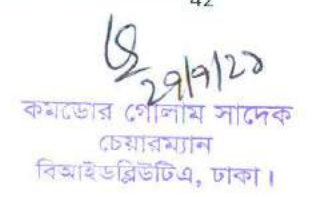 42
কমডোর গোলাম সাদেক
চেয়ারম্যান
বিআইডব্লিউটিএ, ঢাকা।